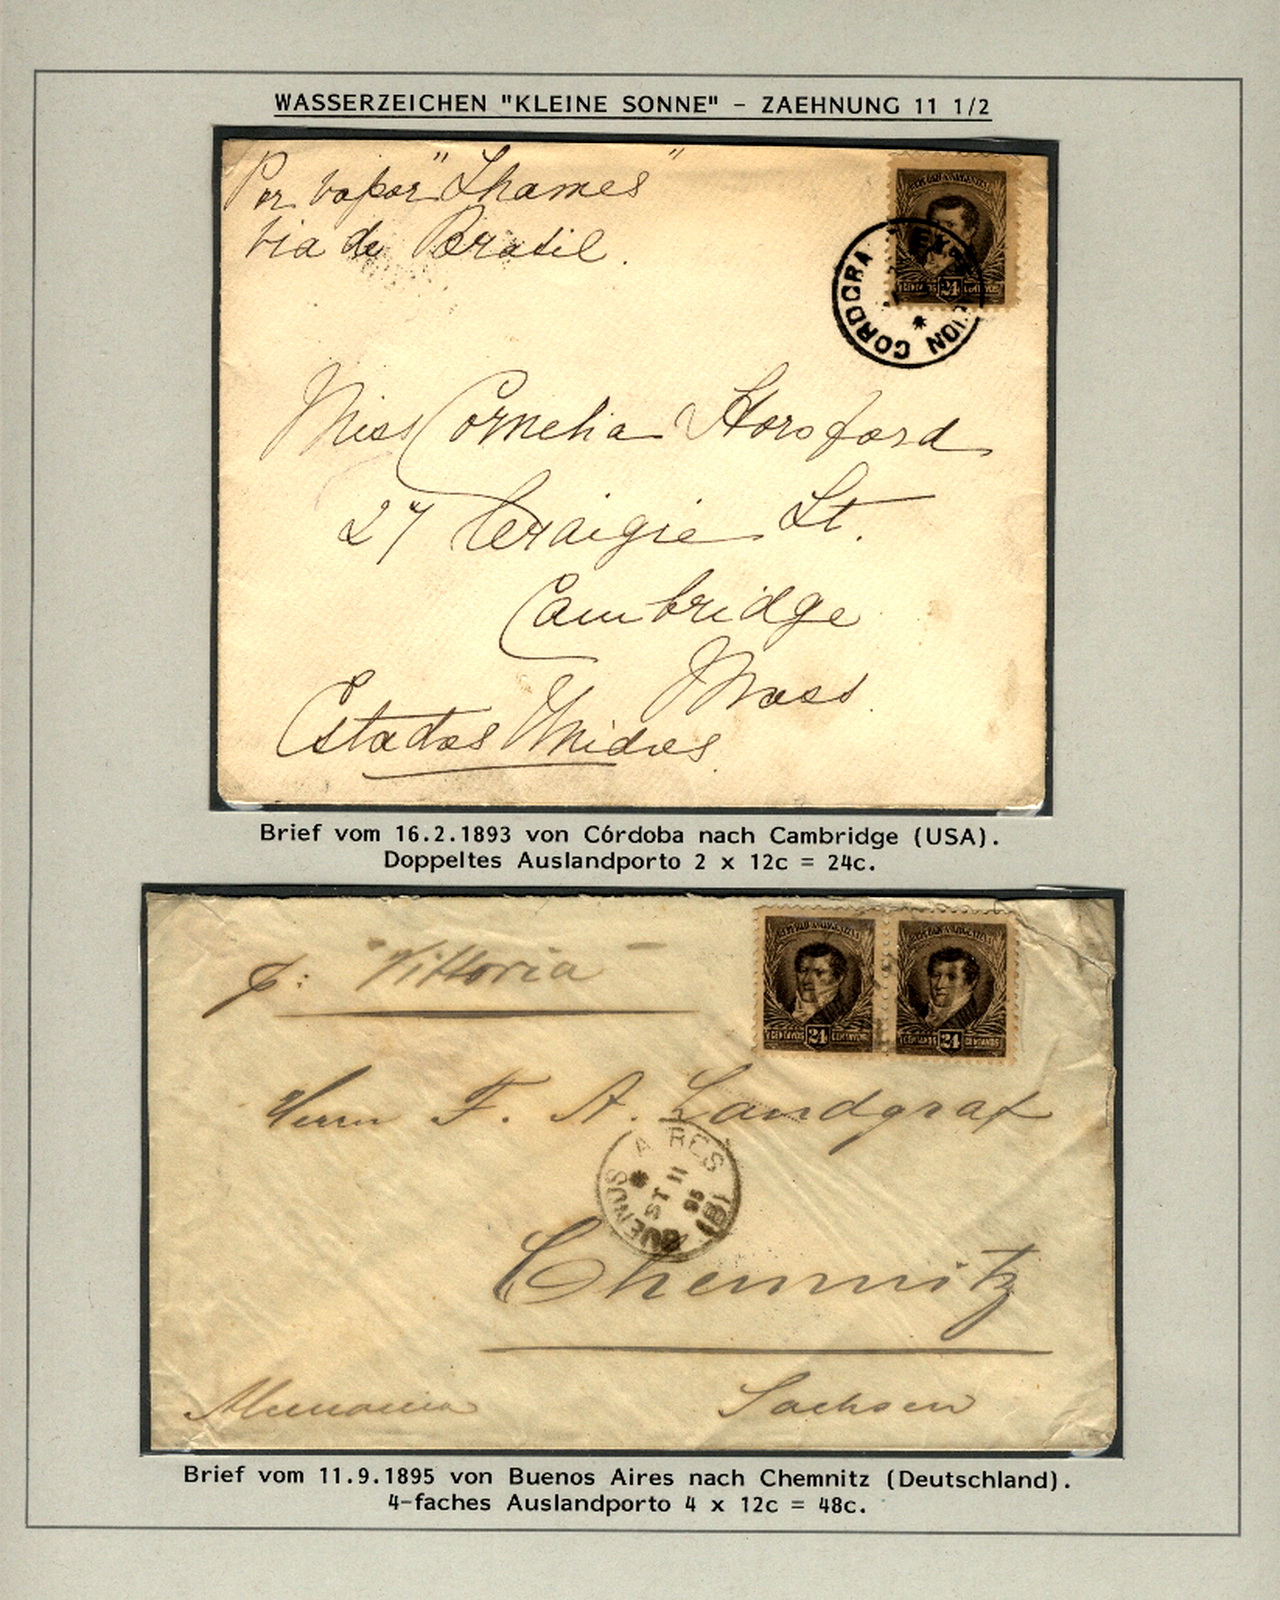 WASSERZEICHEN "KLEINE SONNE" - ZAEHNUNG 11 1/2
Por vapor "Thames"
Via de Brasil.
REPUBLICA ARGENTINA
24
CENTAVOS
CORDOBA
Miss Cornelia Horsford
27 Craigie St.
Cambridge
Mass.
Estados Unidos.
Brief vom 16.2.1893 von Córdoba nach Cambridge (USA).
Doppeltes Auslandporto 2 x 12c = 24c.
p: "Vittoria"
REPUBLICA ARGENTINA
CENTAVOS 24 CENTAVOS
REPUBLICA ARGENTINA
CENTAVOS 24 CENTAVOS
Herrn F. A. Landgraf
BUENOS AIRES
ST 11
95
Chemnitz
Alemania
Sachsen
Brief vom 11.9.1895 von Buenos Aires nach Chemnitz (Deutschland).
4-faches Auslandporto 4 x 12c = 48c.